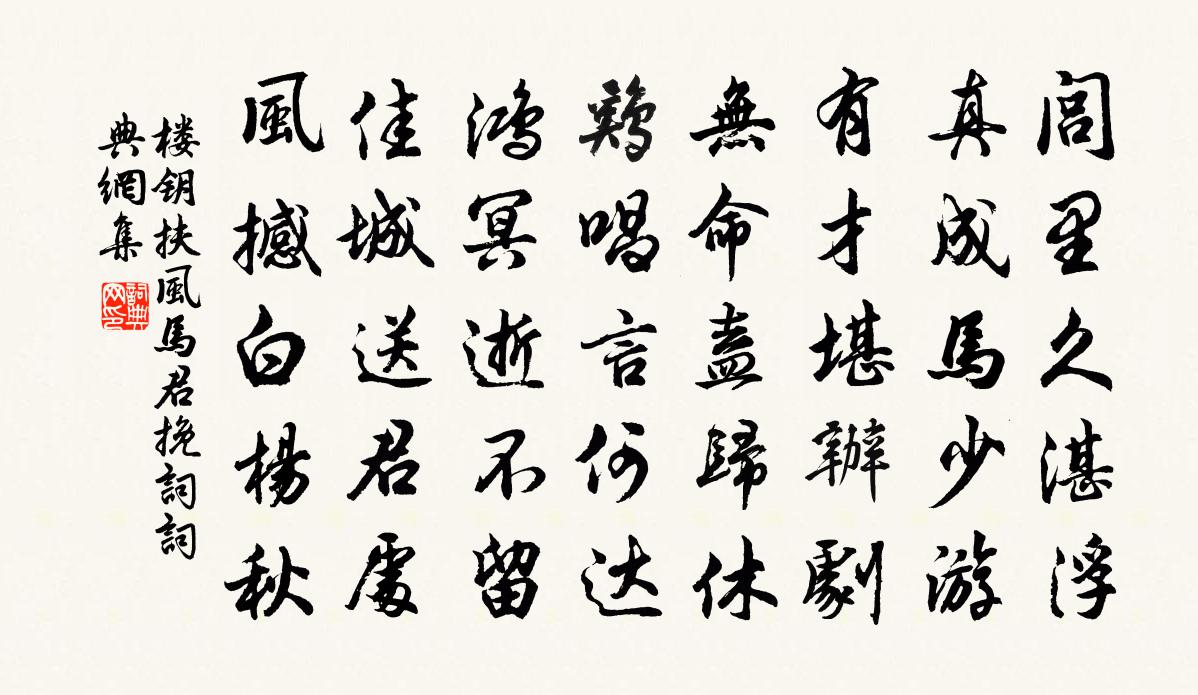 閭里久湛浮
真成馬少游
有才堪辦劇
無命盍歸休
鷄唱言何达
鴻冥逝不留
佳城送君處
風撼白楊秋
楼钥扶風馬君挽詞詞
典網集
詞典
网印